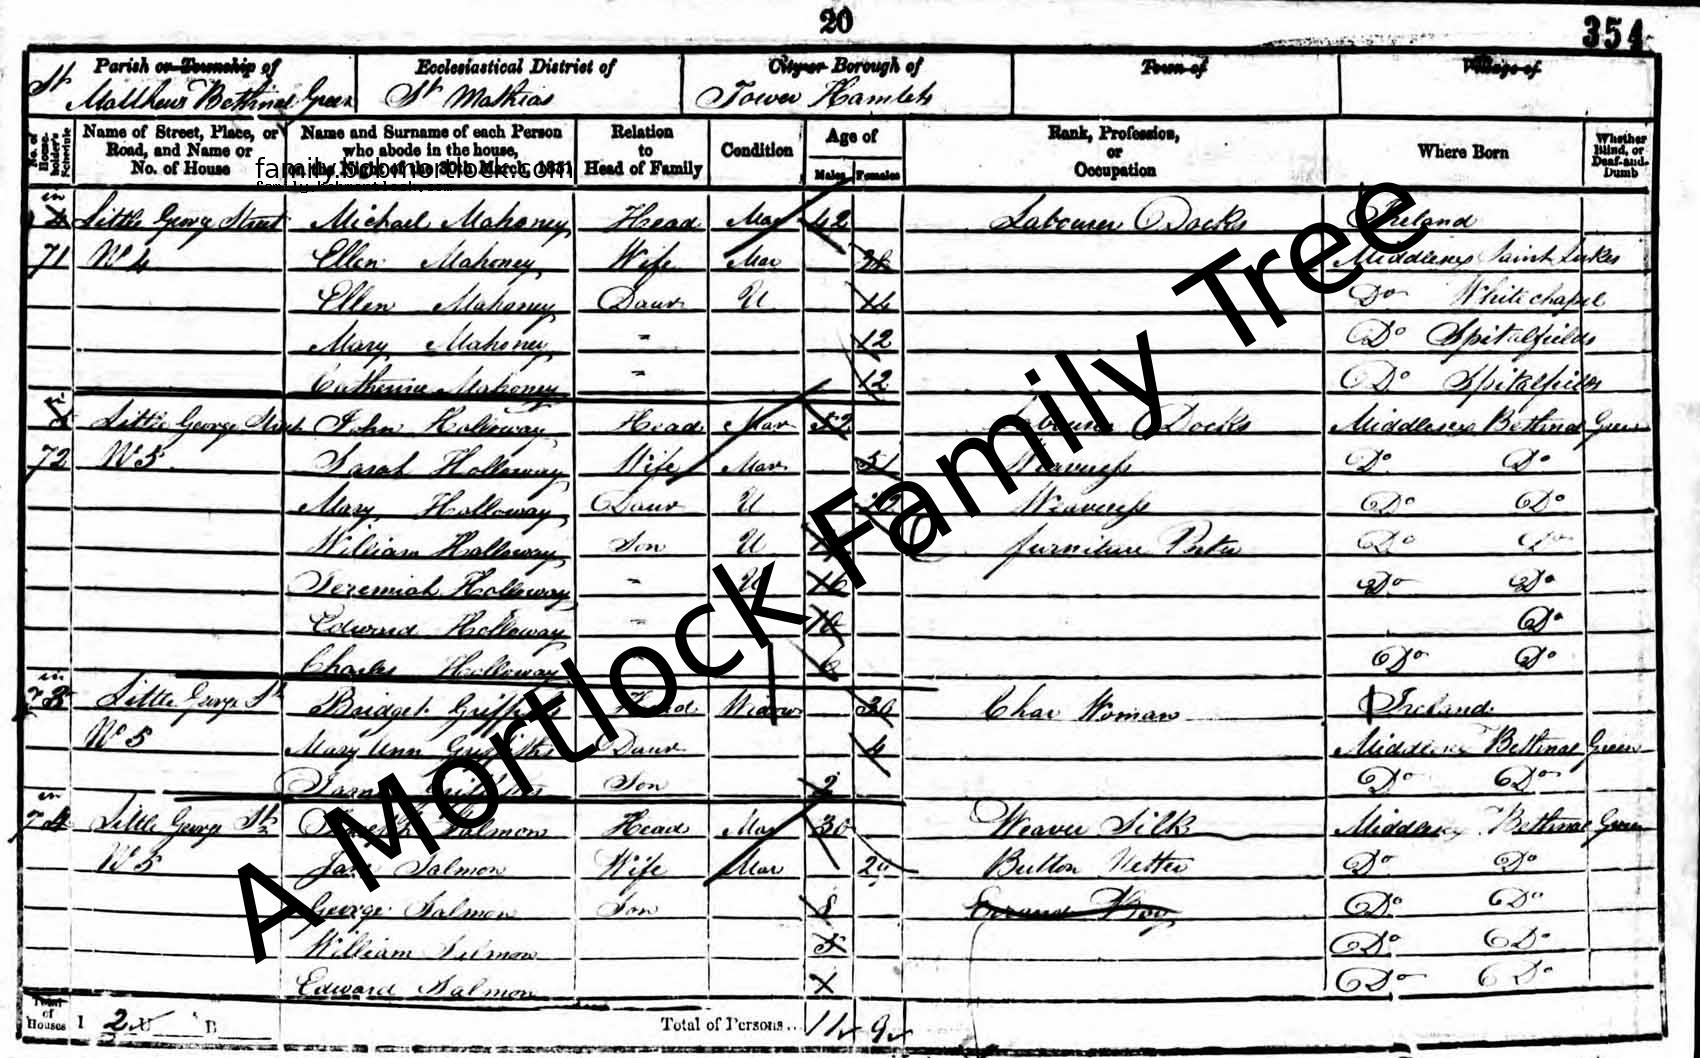 20
354
Parish or Township of Ecclesiastical District of City or Borough of Town of Village of
St Matthew Bethnal Green St Mathias Tower Hamlets
No. of House-holder's Schedule
Name of Street, Place, or Road, and Name or No. of House
Name and Surname of each Person who abode in the house, on the Night of the 30th March, 1851
Relation to Head of Family
Condition
Age of
Males Females
Rank, Profession, or Occupation
Where Born
Whether Blind, or Deaf-and-Dumb
family.bobmortlock.com
family.bobmortlock.com
in Little George Street Michael Mahoney Head Mar 42 Labourer Docks Ireland
71 No 4 Ellen Mahoney Wife Mar Middlesex Saint Lukes
Ellen Mahoney Daur U 14 Do Whitechapel
Mary Mahoney " 12 Do Spitalfields
Catherine Mahoney " 12 Do Spitalfields
in Little George Street John Holloway Head Mar 52 Labourer Docks Middlesex Bethnal Green
72 No 5 Sarah Holloway Wife Mar 51 Weaveress Do Do
Mary Holloway Daur U Weaveress Do Do
William Holloway Son U furniture Porter Do Do
Jeremiah Holloway " U 16 Do Do
Edward Holloway " 10 Do
Charles Holloway 6 Do Do
in 73 Little George St Bridget Griffiths Head Widow 30 Char Woman Ireland
No 5 Mary Ann Griffiths Daur 4 Middlesex Bethnal Green
Griffiths Son 2 Do Do
in 74 Little George St Joseph Salmon Head Mar 30 Weaver Silk Middlesex Bethnal Green
No 5 Jane Salmon Wife Mar 29 Button Do Do
George Salmon Son 8 Errand Boy Do Do
William Salmon 5 Do Do
Edward Salmon Do Do
Total of Houses I 2 U B Total of Persons... 11 9
A Mortlock Family Tree